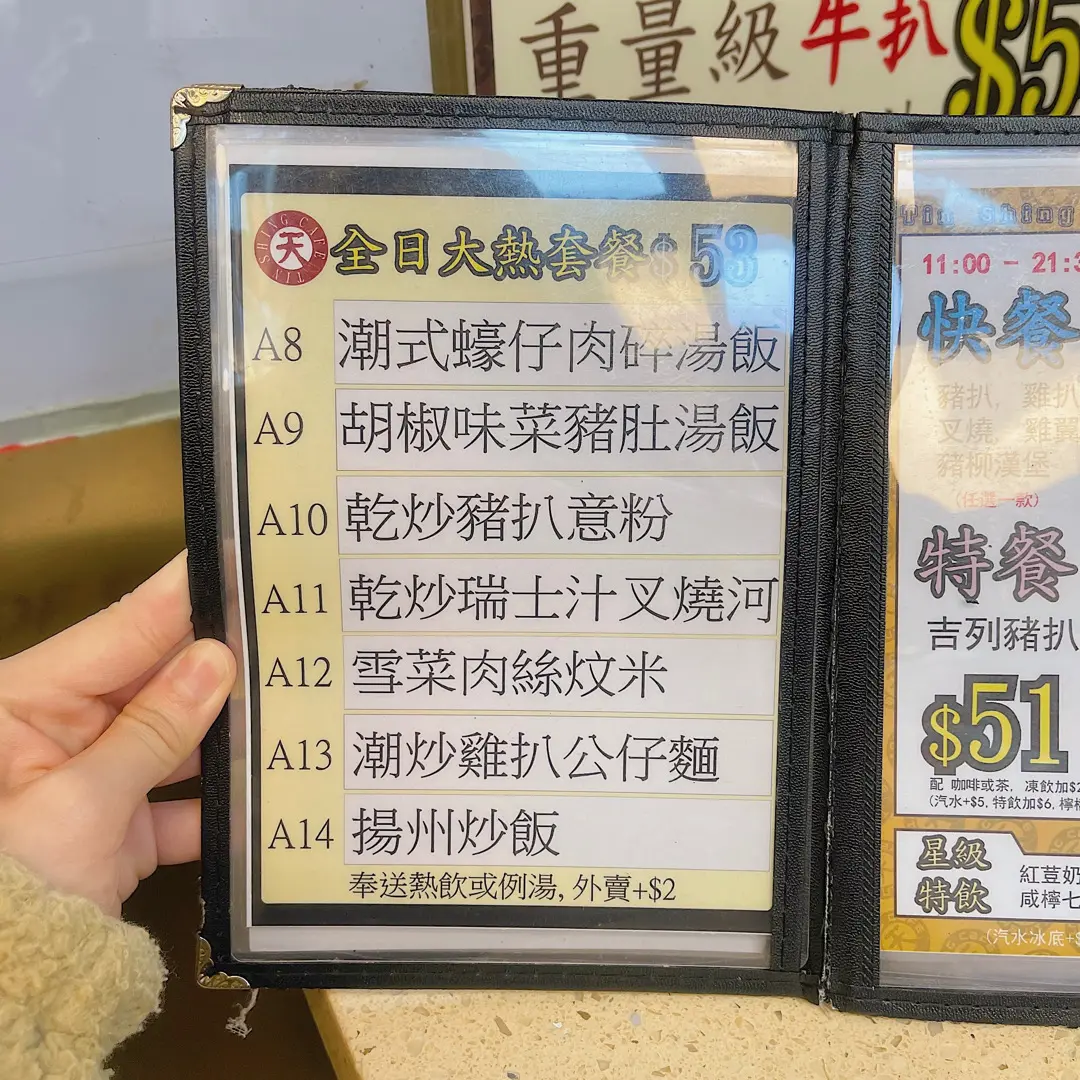 重量級牛扒 $5
TIN SHING CAFE
天
全日大熱套餐 $53
A8 潮式蠔仔肉碎湯飯
A9 胡椒味菜豬肚湯飯
A10 乾炒豬扒意粉
A11 乾炒瑞士汁叉燒河
A12 雪菜肉絲炆米
A13 潮炒雞扒公仔麵
A14 揚州炒飯
奉送熱飲或例湯, 外賣+$2
Tin Shing
11:00 - 21:3
快餐
豬扒, 雞扒
叉燒, 雞翼
豬柳漢堡
(任選一款)
特餐
吉列豬扒
$51
配 咖啡或茶, 凍飲加$2
(汽水+$5, 特飲加$6, 檸
星級
特飲
紅荳奶
咸檸七
(汽水冰底+$